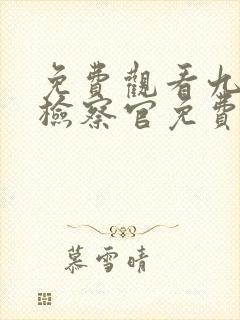 免費觀看九
檢察官免費
慕雪晴